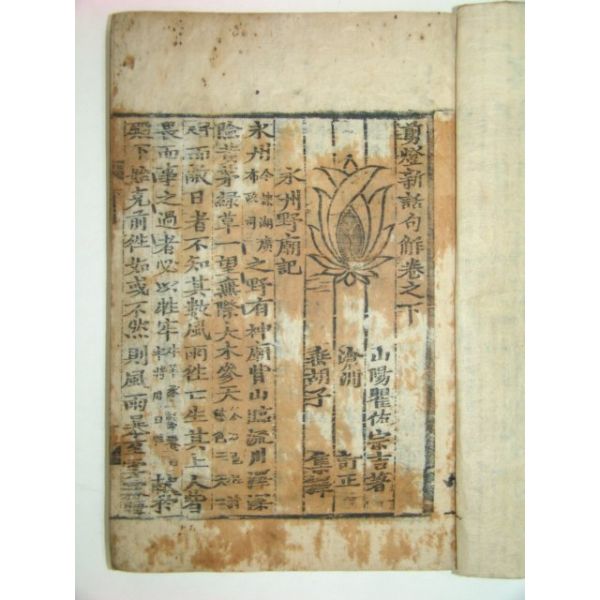 剪燈新話句解卷之下
山陽瞿佑宗吉著
滄洲 訂正
垂胡子 集釋
永州野廟記
永州今隷湖廣布政司之野有神廟背山臨流川澤深
險黃茅綠草一望無際大木參天
而蔽日者不知其數風雨往往生其上人皆
畏而事之過者必以牲牢
殿下始克前往如或不然則風雨暴至雲